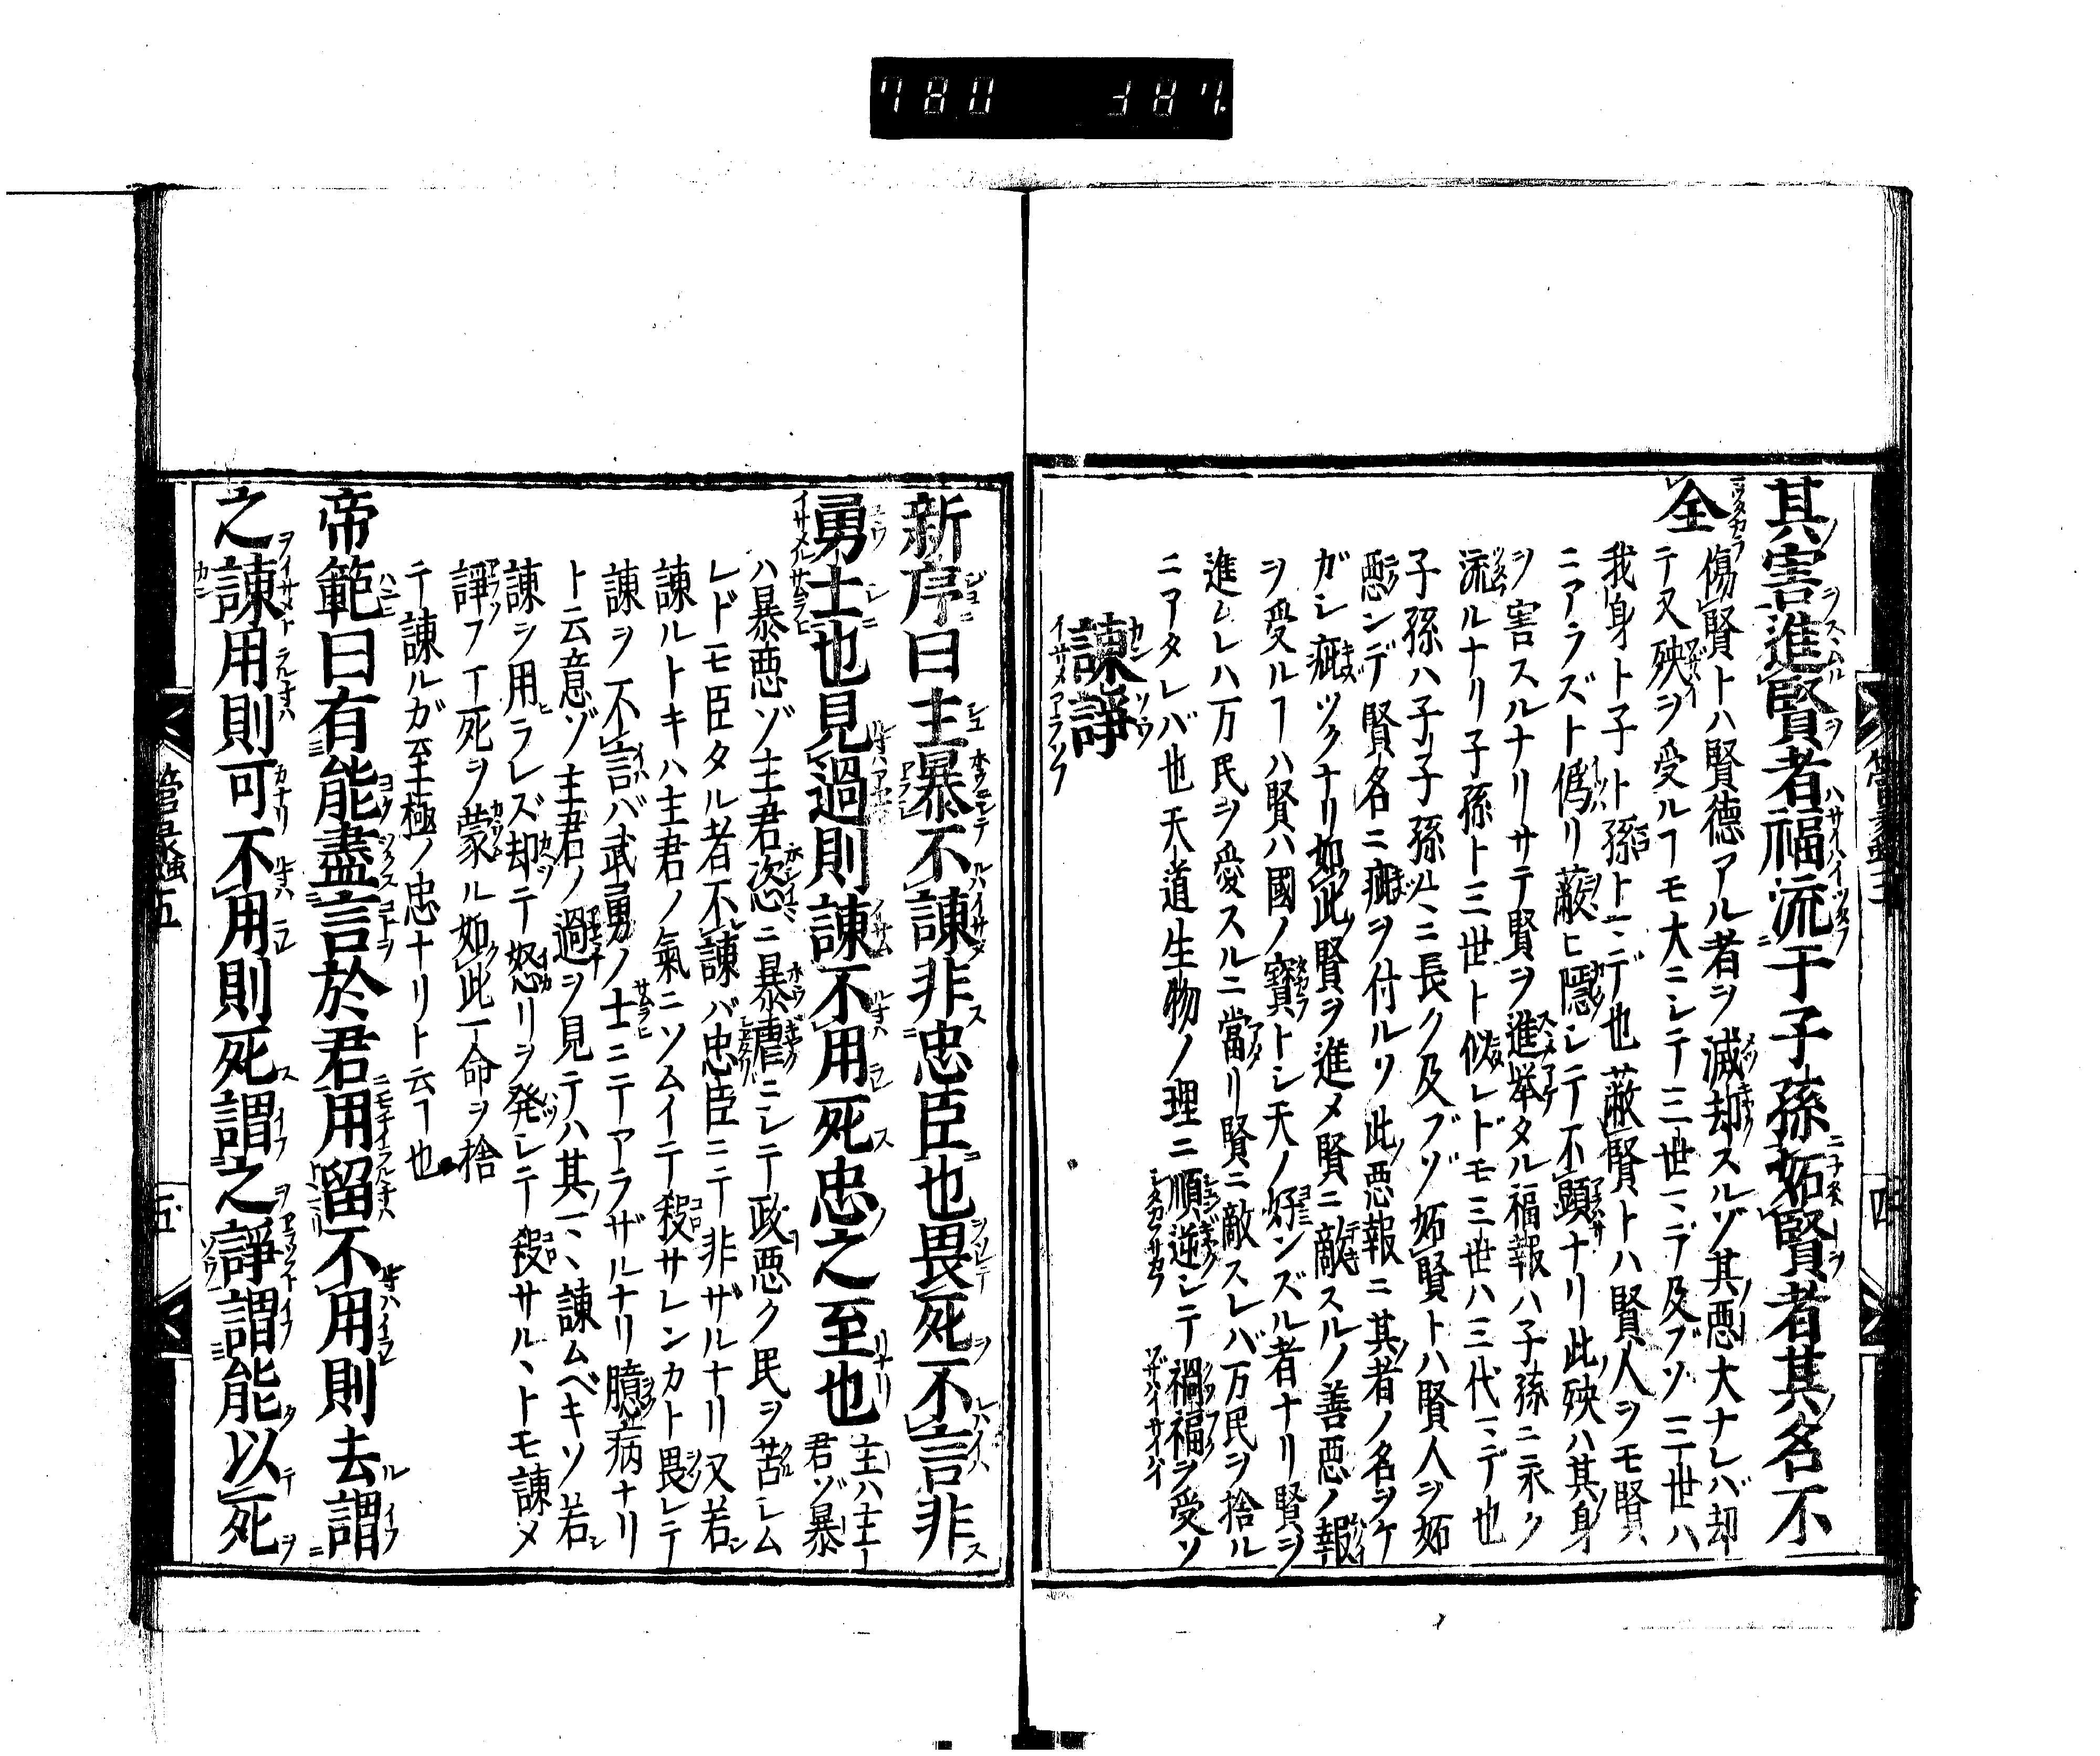 780 387
其害進賢者福流于子孫妬賢者其名不
全
傷賢トハ賢徳アル者ヲ滅却スルゾ其悪大ナレバ却
テ又殃ヲ受ルヿモ大ニシテ三世マデ及ブゾ三世ハ
我身ト子ト孫トマデ也蔽賢トハ賢人ヲモ賢
ニアラズト偽リ蔽ヒ隠シテ不顕ナリ此殃ハ其身
ヲ害スルナリサテ賢ヲ進挙タル福報ハ子孫ニ永ク
流ルナリ子孫ト三世ト似レドモ三世ハ三代マデ也
子孫ハ子子孫々ニ長ク及ブゾ妬賢トハ賢人ヲ妬
悪ンデ賢名ニ疵ヲ付ルソ此悪報ニ其者ノ名ヲケ
ガシ疵ツクナリ如此賢ヲ進メ賢ニ敵スルノ善悪ノ報
ヲ受ルヿハ賢ハ國ノ寳トシ天ノ好ンズル者ナリ賢ヲ
進ムレハ万民ヲ愛スルニ當リ賢ニ敵スレバ万民ヲ捨ル
ニアタレバ也天道生物ノ理ニ順逆シテ禍福ヲ受ソ
諫諍
新序曰主暴不諫非忠臣也畏死不言非
勇士也見過則諫不用死忠之至也
主ハ主
君ゾ暴
ハ暴悪ゾ主君恣ニ暴虐ニシテ政悪ク民ヲ苦シム
レドモ臣タル者不諫バ忠臣ニテ非ザルナリ又若シ
諫ルトキハ主君ノ氣ニソムイテ殺サレンカト畏レテ
諫ヲ不言バ武勇ノ士ニテアラザルナリ臆病ナリ
ト云意ゾ主君ノ過ヲ見テハ其マヽ諫ムベキソ若シ
諫ヲ用ラレズ却テ怒リヲ発シテ殺サルヽトモ諫メ
諍フテ死ヲ蒙ル如此丁命ヲ捨
テ諫ルガ至極ノ忠ナリト云ヿ也
帝範曰有能盡言於君用留不用則去謂
之諫用則可不用則死謂之諍謂能以死